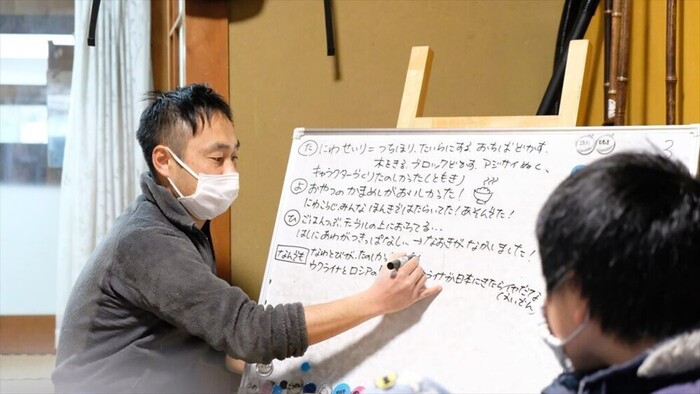 た にわせいり=つちほり、たいらにする おちばどかす、
木をきる、ブロックどかす、アジサイぬく、
キャラクターづくりたのしかった(ともき)
よ おやつのかまめしがおいしかった!
にわそうじみんなほんきではたらいてた!あそんでた!
ひ ごはんつぶ、テーブルの上におちてる...
はしにあわがつきっぱなし、、→なおきがながしました!
なんでも なわとびが、たのしかっ
ウクライナとロシアの イナが日本にきたらイヤだな